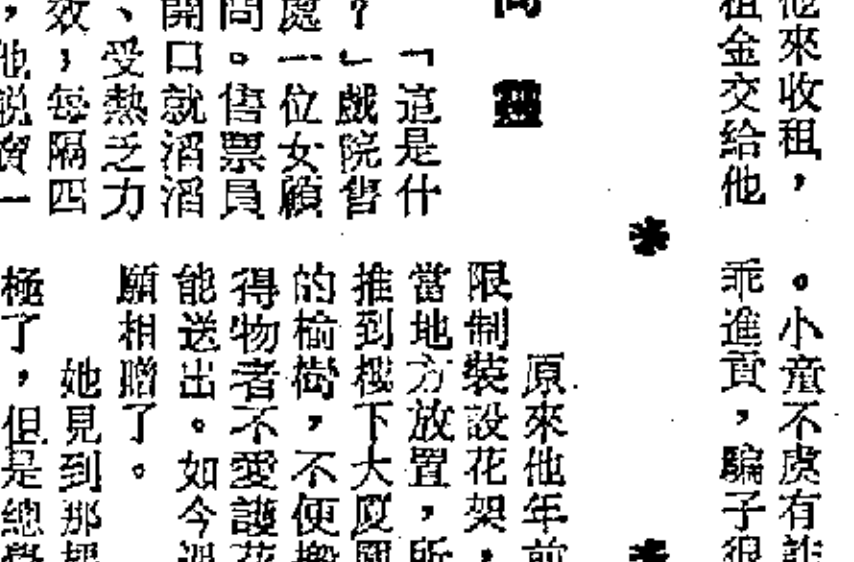 他來收租，
租金交給他
。小童不虞有詐
乖進貢，騙子很
問
「這是什
？」戲院售
處一位女顧
問。售票員
開口就滔滔
、受熱乏力
效，每隔四
，他說賣一
原來他年前
限制裝設花架，
當地方放置，所
推到樓下大廈
的榆樹，不便搬
得物者不愛護花
能送出。如今遇
願相贈了。
她見到那
極了，但是總覺